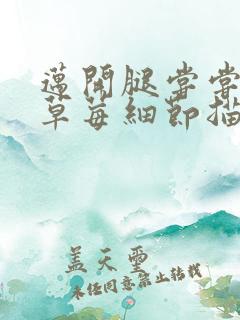 邁開腿嘗嘗
草莓細節描
蓋天璽
未经同意禁止转载